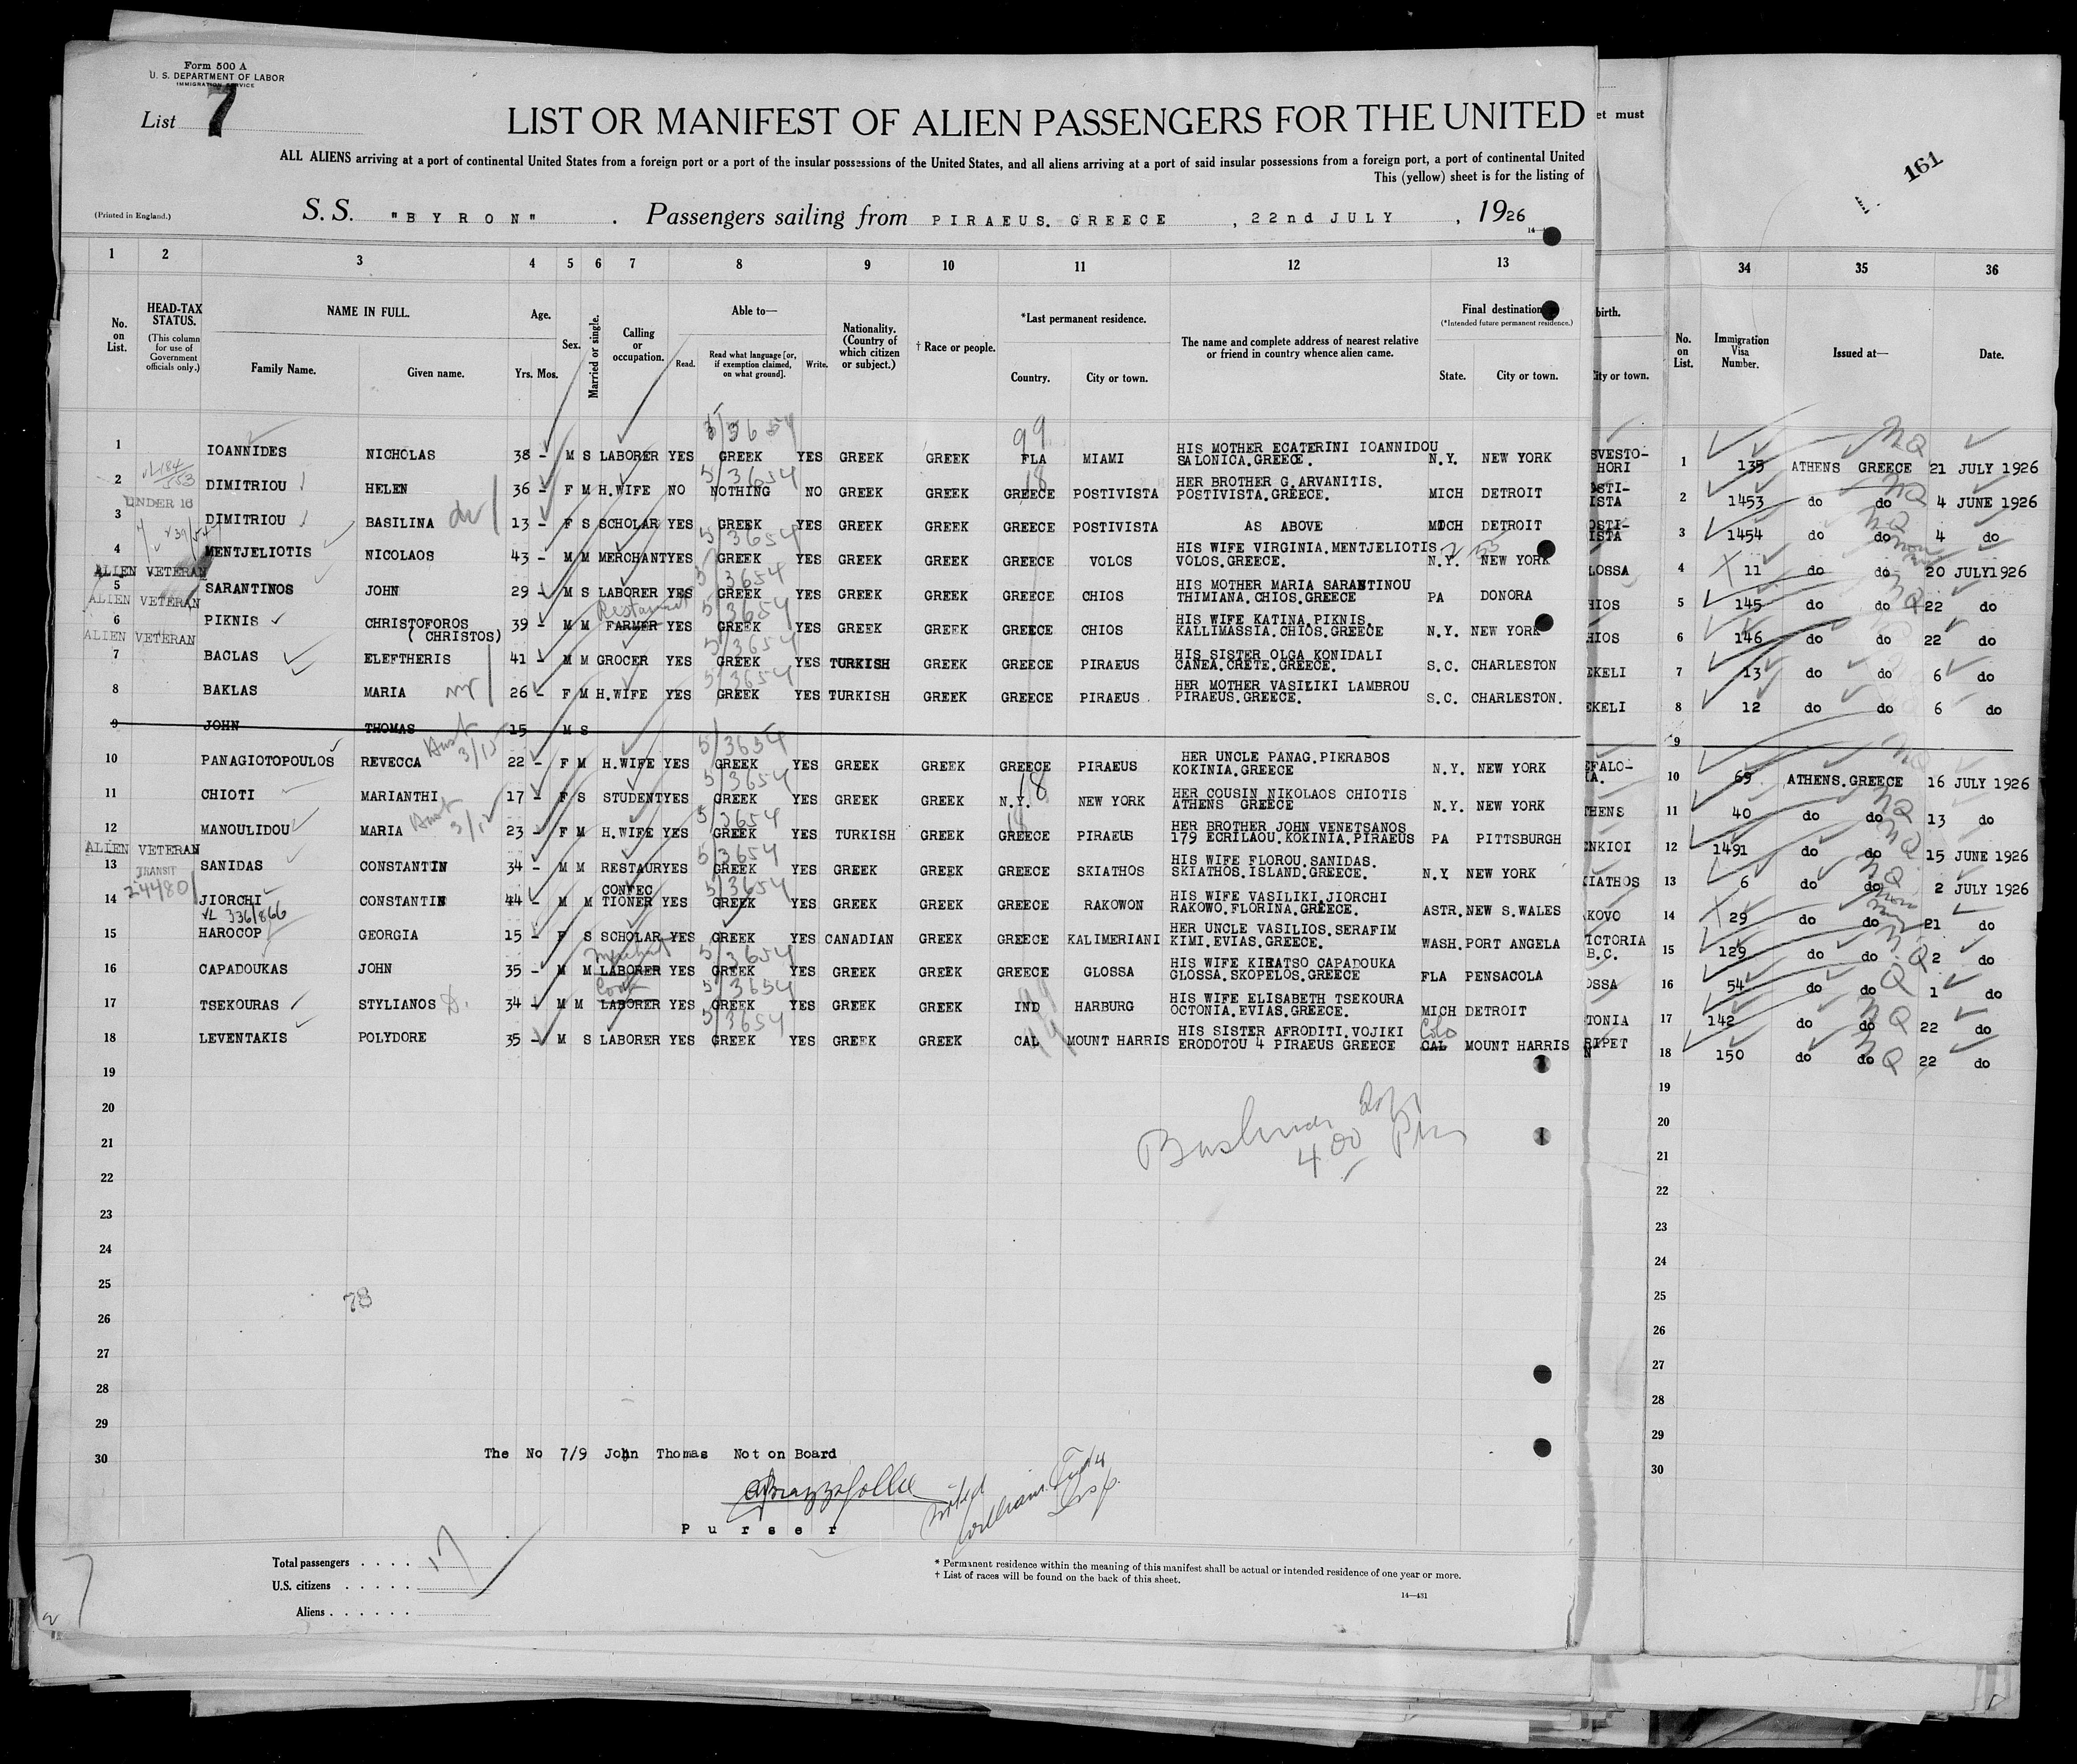 Form 500 A
U. S. DEPARTMENT OF LABOR
IMMIGRATION SERVICE
List 7
LIST OR MANIFEST OF ALIEN PASSENGERS FOR THE UNITED
et must
161
ALL ALIENS arriving at a port of continental United States from a foreign port or a port of the insular possessions of the United States, and all aliens arriving at a port of said insular possessions from a foreign port, a port of continental United
This (yellow) sheet is for the listing of
(Printed in England.)
S. S. "BYRON" . Passengers sailing from PIRAEUS. GREECE , 22nd JULY , 1926
1 2 3 4 5 6 7 8 9 10 11 12 13 34 35 36
No. on List.
HEAD-TAX STATUS.
(This column for use of Government officials only.)
NAME IN FULL.
Family Name. Given name.
Age.
Yrs. Mos.
Sex.
Married or single.
Calling or occupation.
Able to—
Read. Read what language [or, if exemption claimed, on what ground]. Write.
Nationality. (Country of which citizen or subject.)
† Race or people.
*Last permanent residence.
Country. City or town.
The name and complete address of nearest relative or friend in country whence alien came.
Final destination
(*Intended future permanent residence.)
State. City or town.
birth.
City or town.
No. on List.
Immigration Visa Number.
Issued at—
Date.
1 IOANNIDES NICHOLAS 38 - M S LABORER YES 5/3654 GREEK YES GREEK GREEK 99 FLA MIAMI HIS MOTHER ECATERINI IOANNIDOU SALONICA.GREECE. N.Y. NEW YORK SVESTO-HORI 1 135 ATHENS GREECE 21 JULY 1926
2 DIMITRIOU HELEN 36 - F M H.WIFE NO 5/3654 NOTHING NO GREEK GREEK 18 GREECE POSTIVISTA HER BROTHER G.ARVANITIS. POSTIVISTA.GREECE. MICH DETROIT OSTI-ISTA 2 1453 do do 4 JUNE 1926
UNDER 16
3 DIMITRIOU BASILINA 13 - F S SCHOLAR YES GREEK YES GREEK GREEK GREECE POSTIVISTA AS ABOVE MICH DETROIT OSTI-ISTA 3 1454 do do 4 do
4 MENTJELIOTIS NICOLAOS 43 - M M MERCHANT YES 5/3654 GREEK YES GREEK GREEK GREECE VOLOS HIS WIFE VIRGINIA.MENTJELIOTIS VOLOS.GREECE. N.Y. NEW YORK LOSSA 4 11 do do 20 JULY 1926
ALIEN VETERAN
5 SARANTINOS JOHN 29 - M S LABORER YES 5/3654 GREEK YES GREEK GREEK GREECE CHIOS HIS MOTHER MARIA SARANTINOU THIMIANA.CHIOS.GREECE PA DONORA HIOS 5 145 do do 22 do
ALIEN VETERAN
6 PIKNIS CHRISTOFOROS (CHRISTOS) 39 - M M FARMER YES 5/3654 GREEK YES GREEK GREEK GREECE CHIOS HIS WIFE KATINA.PIKNIS. KALLIMASSIA.CHIOS.GREECE N.Y. NEW YORK HIOS 6 146 do do 22 do
ALIEN VETERAN
7 BACLAS ELEFTHERIS 41 - M M GROCER YES 5/3654 GREEK YES TURKISH GREEK GREECE PIRAEUS HIS SISTER OLGA KONIDALI CANEA.CRETE.GREECE. S.C. CHARLESTON EKELI 7 13 do do 6 do
8 BAKLAS MARIA 26 - F M H.WIFE YES 5/3654 GREEK YES TURKISH GREEK GREECE PIRAEUS HER MOTHER VASILIKI LAMBROU PIRAEUS.GREECE. S.C. CHARLESTON. EKELI 8 12 do do 6 do
9 JOHN THOMAS 15 M S 9
10 PANAGIOTOPOULOS REVECCA 22 - F M H.WIFE YES 5/3654 GREEK YES GREEK GREEK GREECE PIRAEUS HER UNCLE PANAG.PIERABOS KOKINIA.GREECE N.Y. NEW YORK EFALO-IA. 10 69 ATHENS.GREECE 16 JULY 1926
11 CHIOTI MARIANTHI 17 - F S STUDENT YES 5/3654 GREEK YES GREEK GREEK 18 N.Y. NEW YORK HER COUSIN NIKOLAOS CHIOTIS ATHENS GREECE N.Y. NEW YORK THENS 11 40 do do 13 do
12 MANOULIDOU MARIA 23 - F M H.WIFE YES 5/3654 GREEK YES TURKISH GREEK GREECE PIRAEUS HER BROTHER JOHN VENETSANOS 179 ECRILAOU.KOKINIA.PIRAEUS PA PITTSBURGH ENKIOI 12 1491 do do 15 JUNE 1926
ALIEN VETERAN
13 SANIDAS CONSTANTIN 34 - M M RESTAUR YES 5/3654 GREEK YES GREEK GREEK GREECE SKIATHOS HIS WIFE FLOROU.SANIDAS. SKIATHOS.ISLAND.GREECE. N.Y NEW YORK KIATHOS 13 6 do do 2 JULY 1926
TRANSIT
244801
14 JIORCHI CONSTANTIN 44 - M M CONFEC TIONER YES 5/3654 GREEK YES GREEK GREEK GREECE RAKOWON HIS WIFE VASILIKI.JIORCHI RAKOWO.FLORINA.GREECE. ASTR. NEW S.WALES AKOVO 14 29 do do 21 do
VL 336/866
15 HAROCOP GEORGIA 15 - F S SCHOLAR YES GREEK YES CANADIAN GREEK GREECE KALIMERIANI HER UNCLE VASILIOS.SERAFIM KIMI.EVIAS.GREECE. WASH. PORT ANGELA VICTORIA B.C. 15 129 do do 2 do
16 CAPADOUKAS JOHN 35 - M M LABORER YES 5/3654 GREEK YES GREEK GREEK GREECE GLOSSA HIS WIFE KIRATSO CAPADOUKA GLOSSA.SKOPELOS.GREECE FLA PENSACOLA OSSA 16 54 do do 1 do
17 TSEKOURAS STYLIANOS 34 - M M LABORER YES 5/3654 GREEK YES GREEK GREEK IND HARBURG HIS WIFE ELISABETH TSEKOURA OCTONIA.EVIAS.GREECE. MICH DETROIT TONIA 17 142 do do 22 do
18 LEVENTAKIS POLYDORE 35 - M S LABORER YES 5/3654 GREEK YES GREEK GREEK CAL MOUNT HARRIS HIS SISTER AFRODITI.VOJIKI ERODOTOU 4 PIRAEUS GREECE CAL Colo MOUNT HARRIS RIPET N 18 150 do do 22 do
19 19
20 20
21 21
22 22
23 23
24 24
25 25
26 26
27 27
28 28
29 29
30 30
400
78
The No 7/9 John Thomas Not on Board
Purser
Total passengers . . . . 17
U.S. citizens . . . . .
Aliens . . . . . .
* Permanent residence within the meaning of this manifest shall be actual or intended residence of one year or more.
† List of races will be found on the back of this sheet.
14—431
7